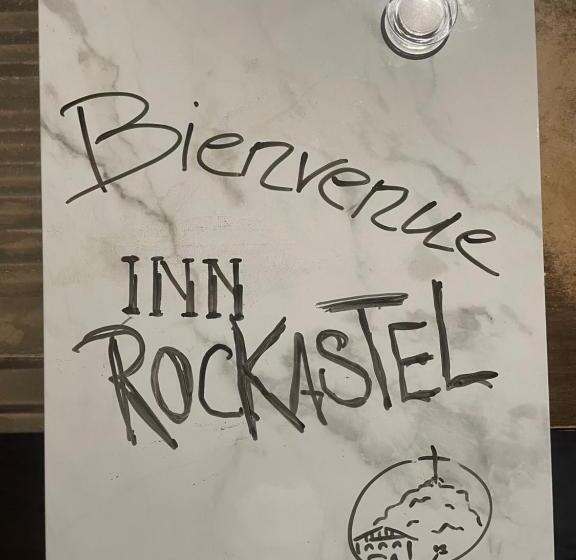 Bienvenue
INN
ROCKASTEL